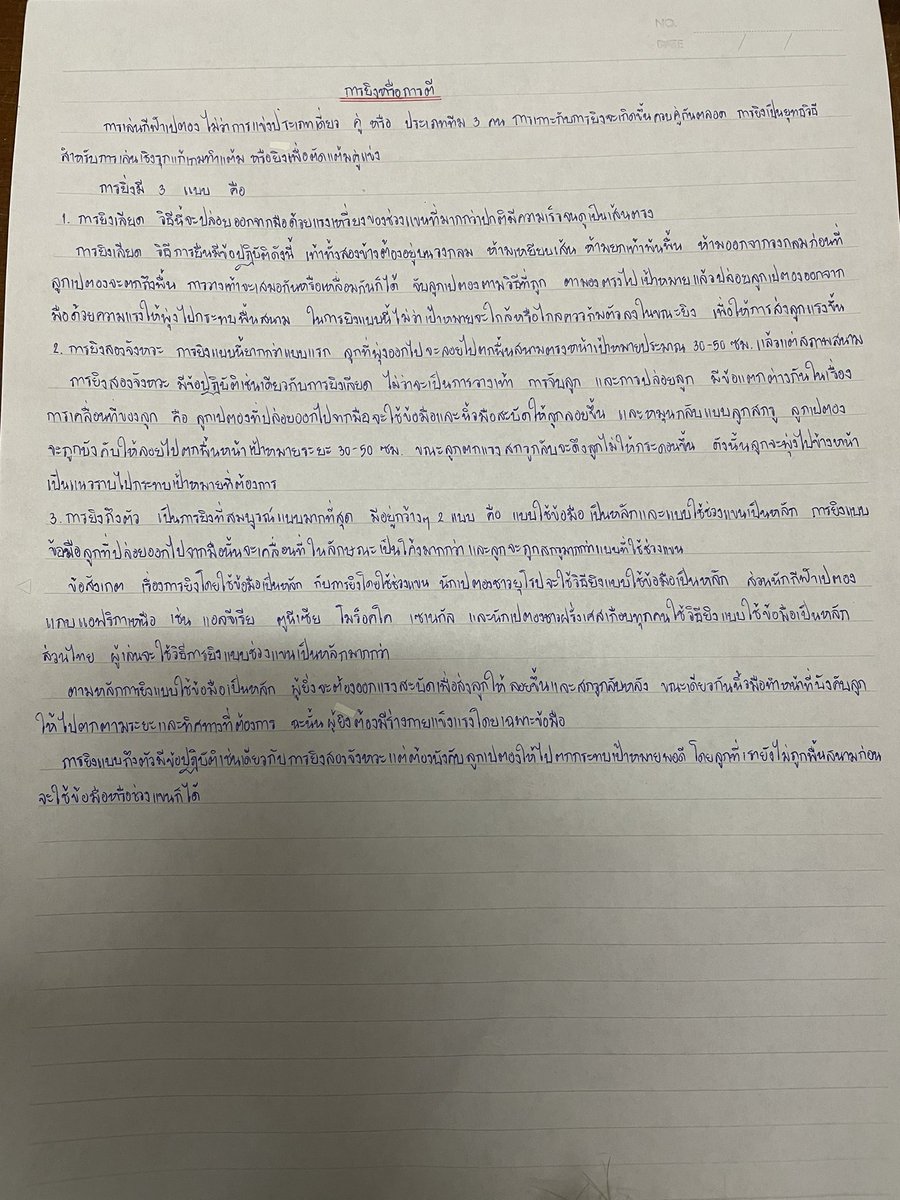 NO.
DATE / /
การยิงหรือการตี
การเล่นกีฬาเปตอง ไม่ว่าการแข่งประเภทเดี่ยว คู่ หรือ ประเภททีม 3 คน การเกาะกับการยิงจะเกิดขึ้นควบคู่กันตลอด การยิงเป็นยุทธวิธี
สำหรับการเล่นเชิงรุกแก้เกมทำแต้ม หรือยิงเพื่อตัดแต้มคู่แข่ง
การยิ่งมี 3 แบบ คือ
1. การยิงเลียด วิธีนี้จะปล่อยออกจากมือด้วยแรงเหวี่ยงของช่วงแขนที่มากกว่าปกติมีความเร็วจนดูเป็นเส้นตรง
การยิงเลียด วิธีการยืนมีข้อปฏิบัติดังนี้ เท้าทั้งสองข้างต้องอยู่บนวงกลม ห้ามเหยียบเส้น ห้ามยกเท้าพ้นพื้น ห้ามออกจากวงกลมก่อนที่
ลูกเปตองจะตกถึงพื้น การวางเท้าจะเสมอกันหรือเหลื่อมกันก็ได้ จับลูกเปตองตามวิธีที่ถูก ตามองตรงไปเป้าหมายแล้วปล่อยลูกเปตองออกจาก
มือด้วยความแรงให้พุ่งไปกระทบพื้นสนาม ในการยิงแบบนี้ไม่ว่าเป้าหมายจะใกล้หรือไกลควรก้มตัวลงในขณะยิง เพื่อให้การส่งลูกแรงขึ้น
2. การยิงสองจังหวะ การยิงแบบนี้ยากกว่าแบบแรก ลูกที่พุ่งออกไปจะลอยไปตกพื้นสนามตรงหน้าเป้าหมายประมาณ 30-50 ซม. แล้วแต่สภาพสนาม
การยิงสองจังหวะ มีข้อปฏิบัติเช่นเดียวกับการยิงเลียด ไม่ว่าจะเป็นการวางเท้า การจับลูก และการปล่อยลูก มีข้อแตกต่างกันในเรื่อง
การเคลื่อนที่ของลูก คือ ลูกเปตองที่ปล่อยออกไปจากมือจะใช้ข้อมือและนิ้วมือสะบัดให้ลูกลอยขึ้น และหมุนกลับแบบลูกสกรู ลูกเปตอง
จะถูกบังคับให้ลอยไปตกพื้นหน้าเป้าหมายระยะ 30-50 ซม. ขณะลูกตกแรงสกรูกลับจะดึงลูกไม่ให้กระดอนขึ้น ดังนั้นลูกจะพุ่งไปข้างหน้า
เป็นแนวราบไปกระทบเป้าหมายที่ต้องการ
3. การยิงถึงตัว เป็นการยิงที่สมบูรณ์แบบมากที่สุด มีอยู่กว้างๆ 2 แบบ คือ แบบใช้ข้อมือเป็นหลักและแบบใช้ช่วงแขนเป็นหลัก การยิงแบบ
ข้อมือลูกที่ปล่อยออกไปจากมือนั้นจะเคลื่อนที่ในลักษณะเป็นโค้งมากกว่า และลูกจะถูกสกรูมากกว่าแบบที่ใช้ช่วงแขน
ข้อสังเกต เรื่องการยิงโดยใช้ข้อมือเป็นหลัก กับการยิงโดยใช้ช่วงแขน นักเปตองชาวยุโรปจะใช้วิธียิงแบบใช้ข้อมือเป็นหลัก ส่วนนักกีฬาเปตอง
แถบแอฟริกาเหนือ เช่น แอลจีเรีย ตูนีเซีย โมร็อคโค เซเนกัล และนักเปตองชาวฝรั่งเศสเกือบทุกคนใช้วิธียิงแบบใช้ข้อมือเป็นหลัก
ส่วนไทย ผู้เล่นจะใช้วิธีการยิงแบบช่วงแขนเป็นหลักมากกว่า
ตามหลักการยิงแบบใช้ข้อมือเป็นหลัก ผู้ยิ่งจะต้องออกแรงสะบัดเพื่อส่งลูกให้ ลอยขึ้นและสกรูกลับหลัง ขณะเดียวกันนิ้วมือทำหน้าที่บังคับลูก
ให้ไปตกตามระยะและทิศทางที่ต้องการ ฉะนั้นผู้ยิงต้องมีร่างกายแข็งแรงโดยเฉพาะข้อมือ
การยิงแบบถึงตัวมีข้อปฏิบัติเช่นเดียวกับการยิงสองจังหวะแต่ต้องบังคับลูกเปตองให้ไปตกกระทบเป้าหมายพอดี โดยลูกที่เรายังไม่ถูกพื้นสนามก่อน
จะใช้ข้อมือหรือช่วงแขนก็ได้